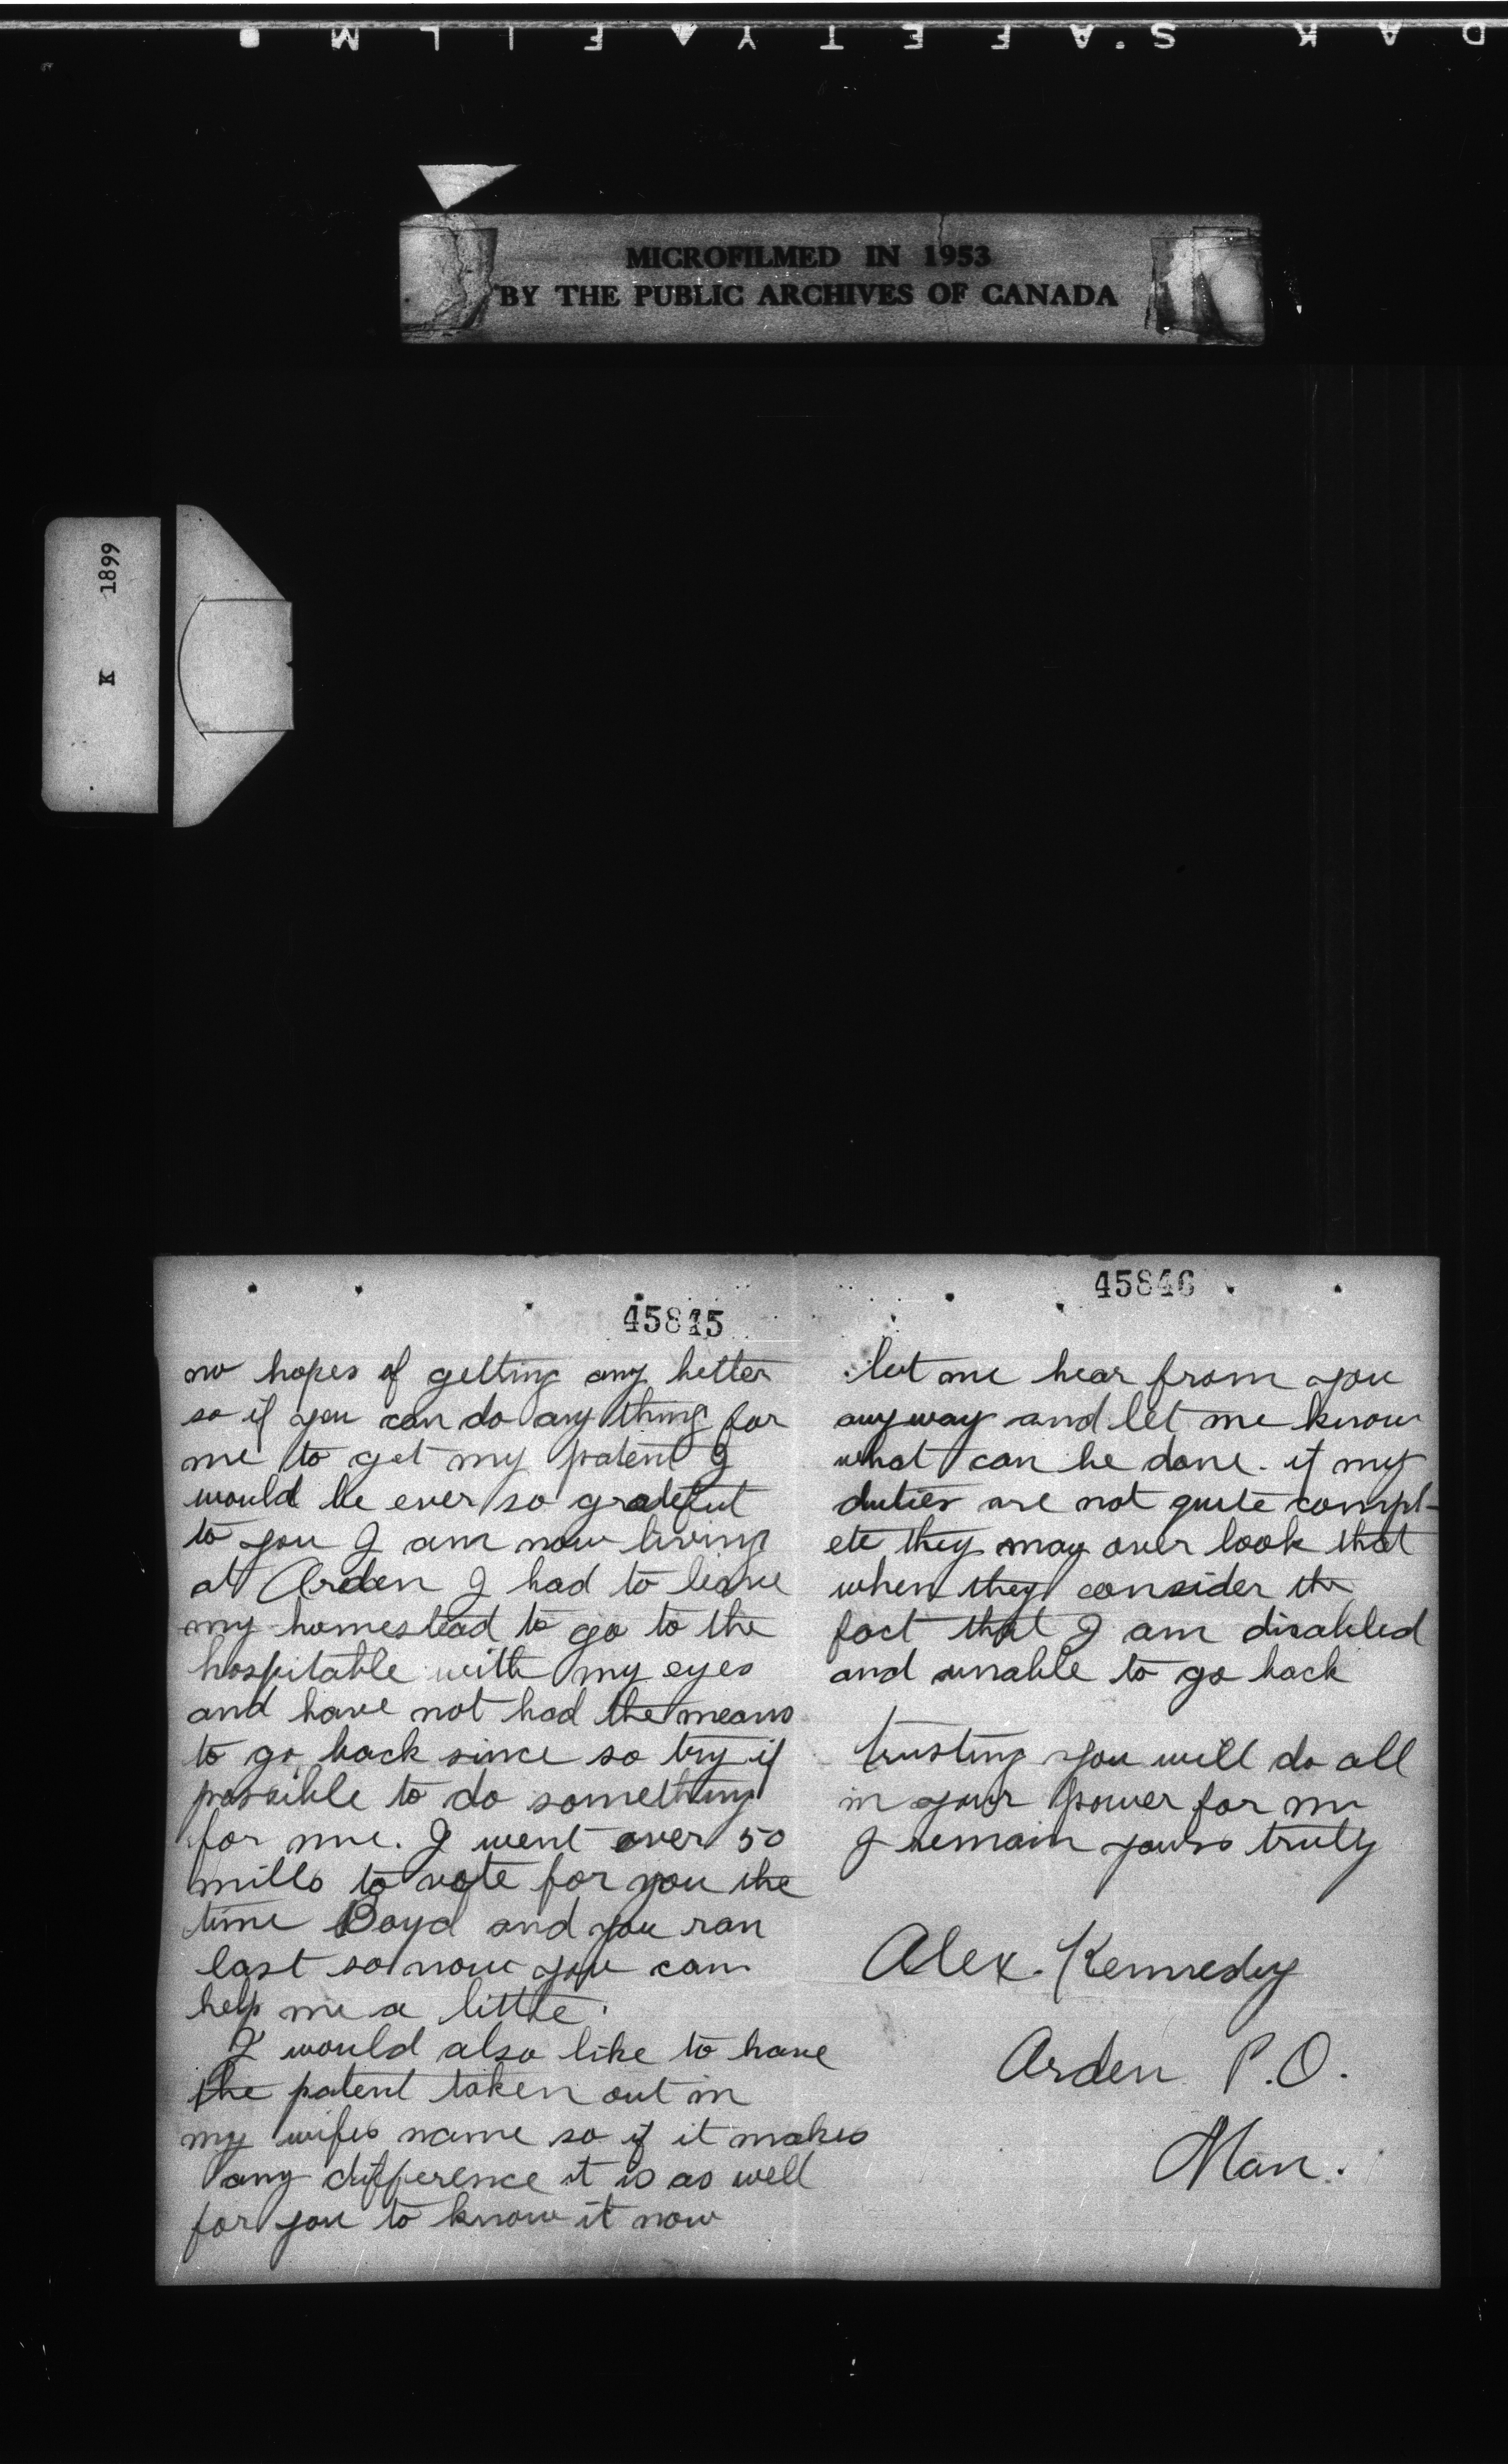 O A K S'A F E T Y ▲ F I L M ●
MICROFILMED IN 1953
BY THE PUBLIC ARCHIVES OF CANADA
K 1899
45845
no hopes of getting any better
so if you can do any thing for
me to get my patent I
would be ever so grateful
to you I am now living
at Arden I had to leave
my homestead to go to the
hospitable with my eyes
and have not had the means
to go back since so try if
possible to do something
for me. I went over 50
mills to vote for you the
time Boyd and you ran
last so now you can
help me a little.
I would also like to have
the patent taken out in
my wifes name so if it makes
any difference it is as well
for you to know it now
45846
let me hear from you
anyway and let me know
what can be done. if my
duties are not quite compl-
ete they may over look that
when they consider the
fact that I am disabled
and unable to go back
trusting you will do all
in your power for me
I remain yours truly
Alex. Kennedy
Arden P.O.
Man.